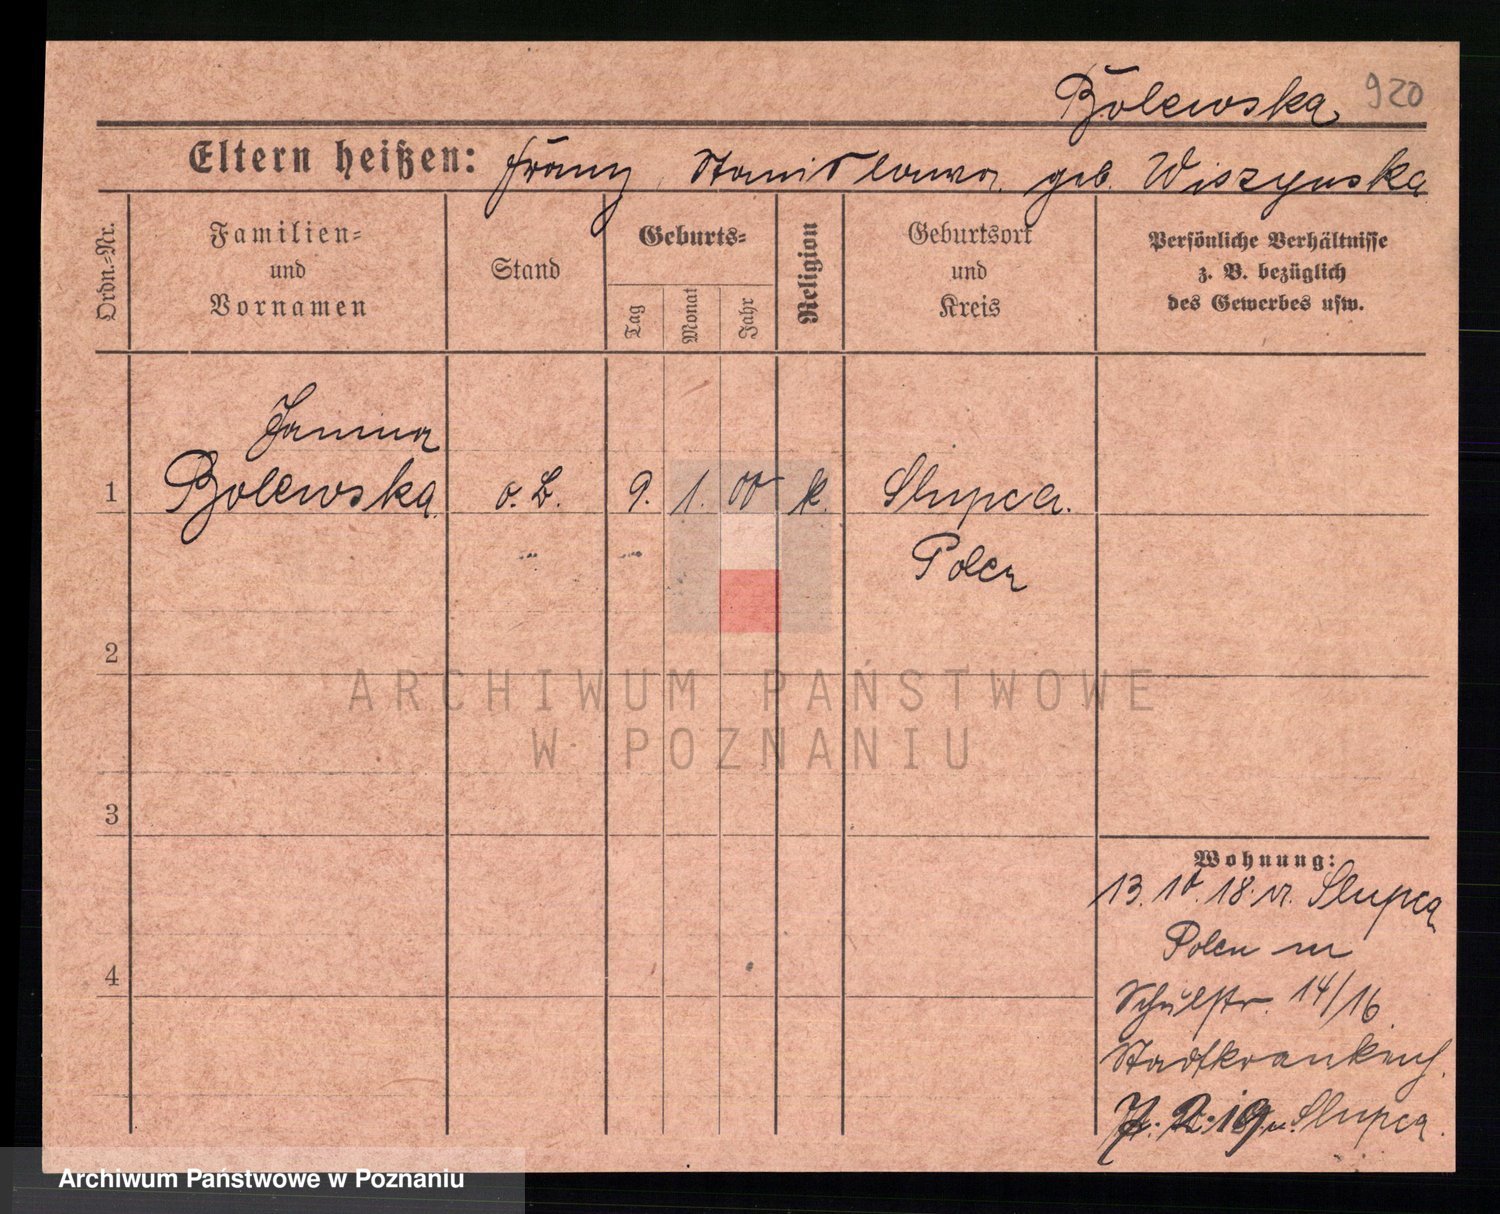 Bolewska 920
Eltern heißen: Franz, Stanislawa geb. Wiszynska
Ordn.=Nr.
Familien=
und
Vornamen
Stand
Geburts=
Tag
Monat
Jahr
Religion
Geburtsort
und
Kreis
Persönliche Verhältnisse
z. B. bezüglich
des Gewerbes usw.
Janina
1 Bolewska o. B. 9. 1. 00 k. Slupca.
Polen
2
3
4
Wohnung:
13. 10. 18. v. Slupca
Polen n
Schulstr. 14/16
Stadtkrankenh.
19 n. Slupca.
ARCHIWUM PAŃSTWOWE
W POZNANIU
Archiwum Państwowe w Poznaniu